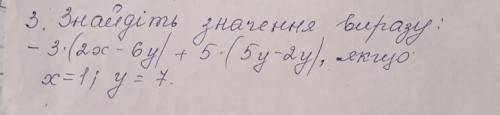 3. Знайдіть значення виразу:
- 3·(2x - 6y) + 5·(5y - 2y), якщо
x = 1; y = 7.